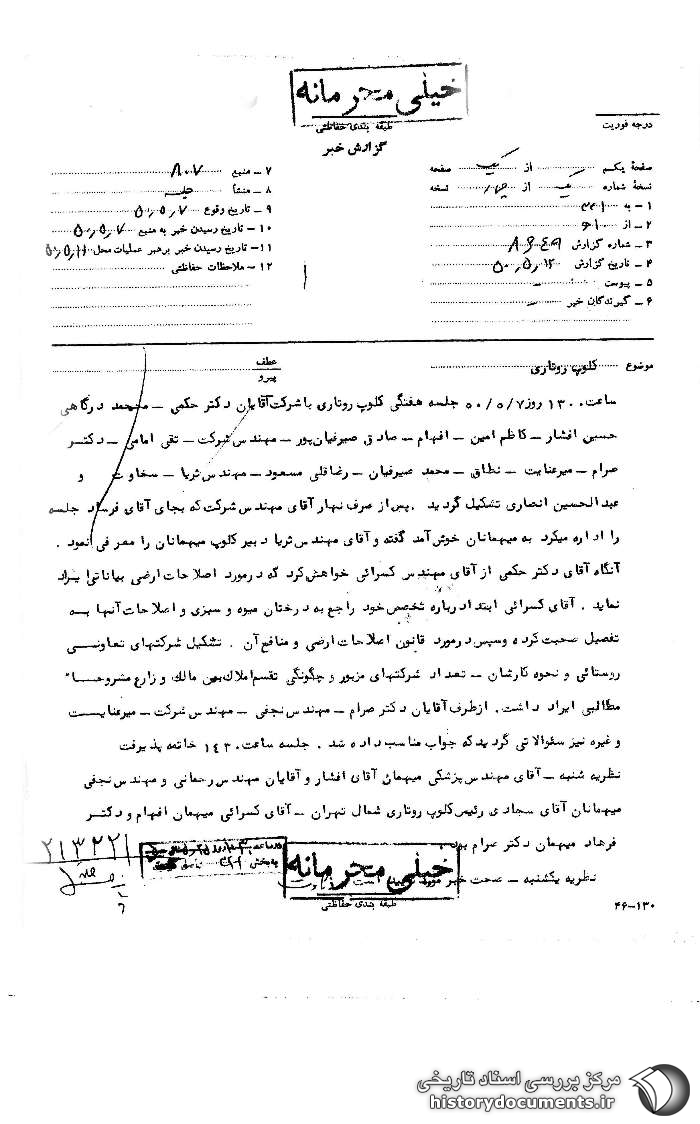 خیلی محرمانه
طبقه بندی حفاظتی
گزارش خبر
درجه فوریت
صفحهٔ یکم از یک صفحه
نسخهٔ شماره یک از چهار نسخه
۱ – به ۳۴۱
۲ – از ۶۱
۳ – شماره گزارش
۴ – تاریخ گزارش ۵۰٫۵٫۱۲
۵ – پیوست
۶ – گیرندگان خبر
۷ – منبع ۸۰۷
۸ – منشأ جلسه
۹ – تاریخ وقوع ۵۰٫۵٫۷
۱۰ – تاریخ رسیدن خبر به منبع ۵۰٫۵٫۷
۱۱ – تاریخ رسیدن خبر برهبر عملیات محل ۵۰٫۵٫۱۱
۱۲ – ملاحظات حفاظتی
موضوع کلوپ روتاری
عطف
پیرو
ساعت ۱۳۰۰ روز ۵۰/۵/۷ جلسه هفتگی کلوپ روتاری با شرکت آقایان دکتر حکمی – محمد درگاهی
حسین افشار – کاظم امین – افهام – صادق صیرفیان پور – مهندس شرکت – تقی امامی – دکتر
صرام – میرعنایت – نطاق – محمد صیرفیان – رضاقلی مسعود – مهندس ثریا – سخاوت و
عبدالحسین انصاری تشکیل گردید . پس از صرف نهار آقای مهندس شرکت که بجای آقای فرساد جلسه
را اداره میکرد به میهمانان خوش آمد گفته و آقای مهندس ثریا دبیر کلوپ میهمانان را معرفی نمود .
آنگاه آقای دکتر حکمی از آقای مهندس کسرائی خواهش کرد که در مورد اصلاحات ارضی بیاناتی ایراد
نماید . آقای کسرائی ابتدا درباره تخصص خود راجع به درختان میوه و سبزی و اصلاحات آنها به
تفصیل صحبت کرده و سپس در مورد قانون اصلاحات ارضی و منافع آن . تشکیل شرکتهای تعاونی
روستائی و نحوه کارشان – تعداد شرکتهای مزبور و چگونگی تقسیم املاک بین مالک و زارع مشروحا"
مطالبی ایراد داشت . از طرف آقایان دکتر صرام – مهندس نجفی – مهندس شرکت – میرعنایت
و غیره نیز سئوالاتی گردید که جواب مناسب داده شد . جلسه ساعت ۱۴۳۰ خاتمه پذیرفت
نظریه شنبه – آقای مهندس پزشکی میهمان آقای افشار و آقایان مهندس رحمانی و مهندس نجفی
میهمانان آقای سجادی رئیس کلوپ روتاری شمال تهران – آقای کسرائی میهمان افهام و دکتر
فرهاد میهمان دکتر صرام بود .
نظریه یکشنبه – صحت خبر مورد است
خیلی محرمانه
طبقه بندی حفاظتی
۲۱۳۲۲۱
۴۶–۱۳۰
مرکز بررسی اسناد تاریخی
historydocuments.ir